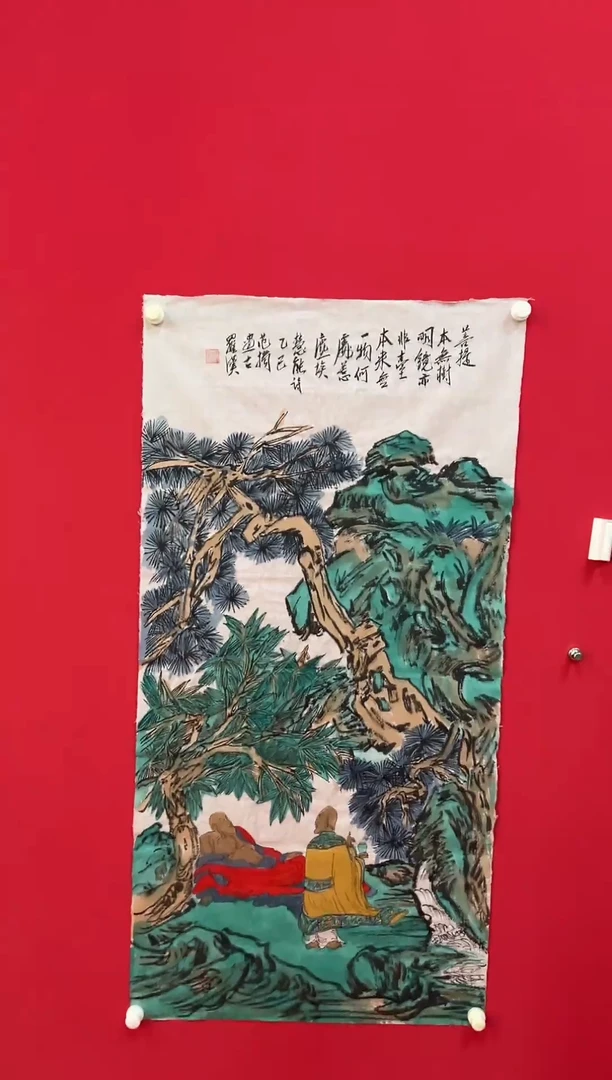 菩提
本無樹
明鏡亦
非臺
本来無
一物何
處惹
塵埃
慧能诗
乙巳
范揚
畫古
羅漢